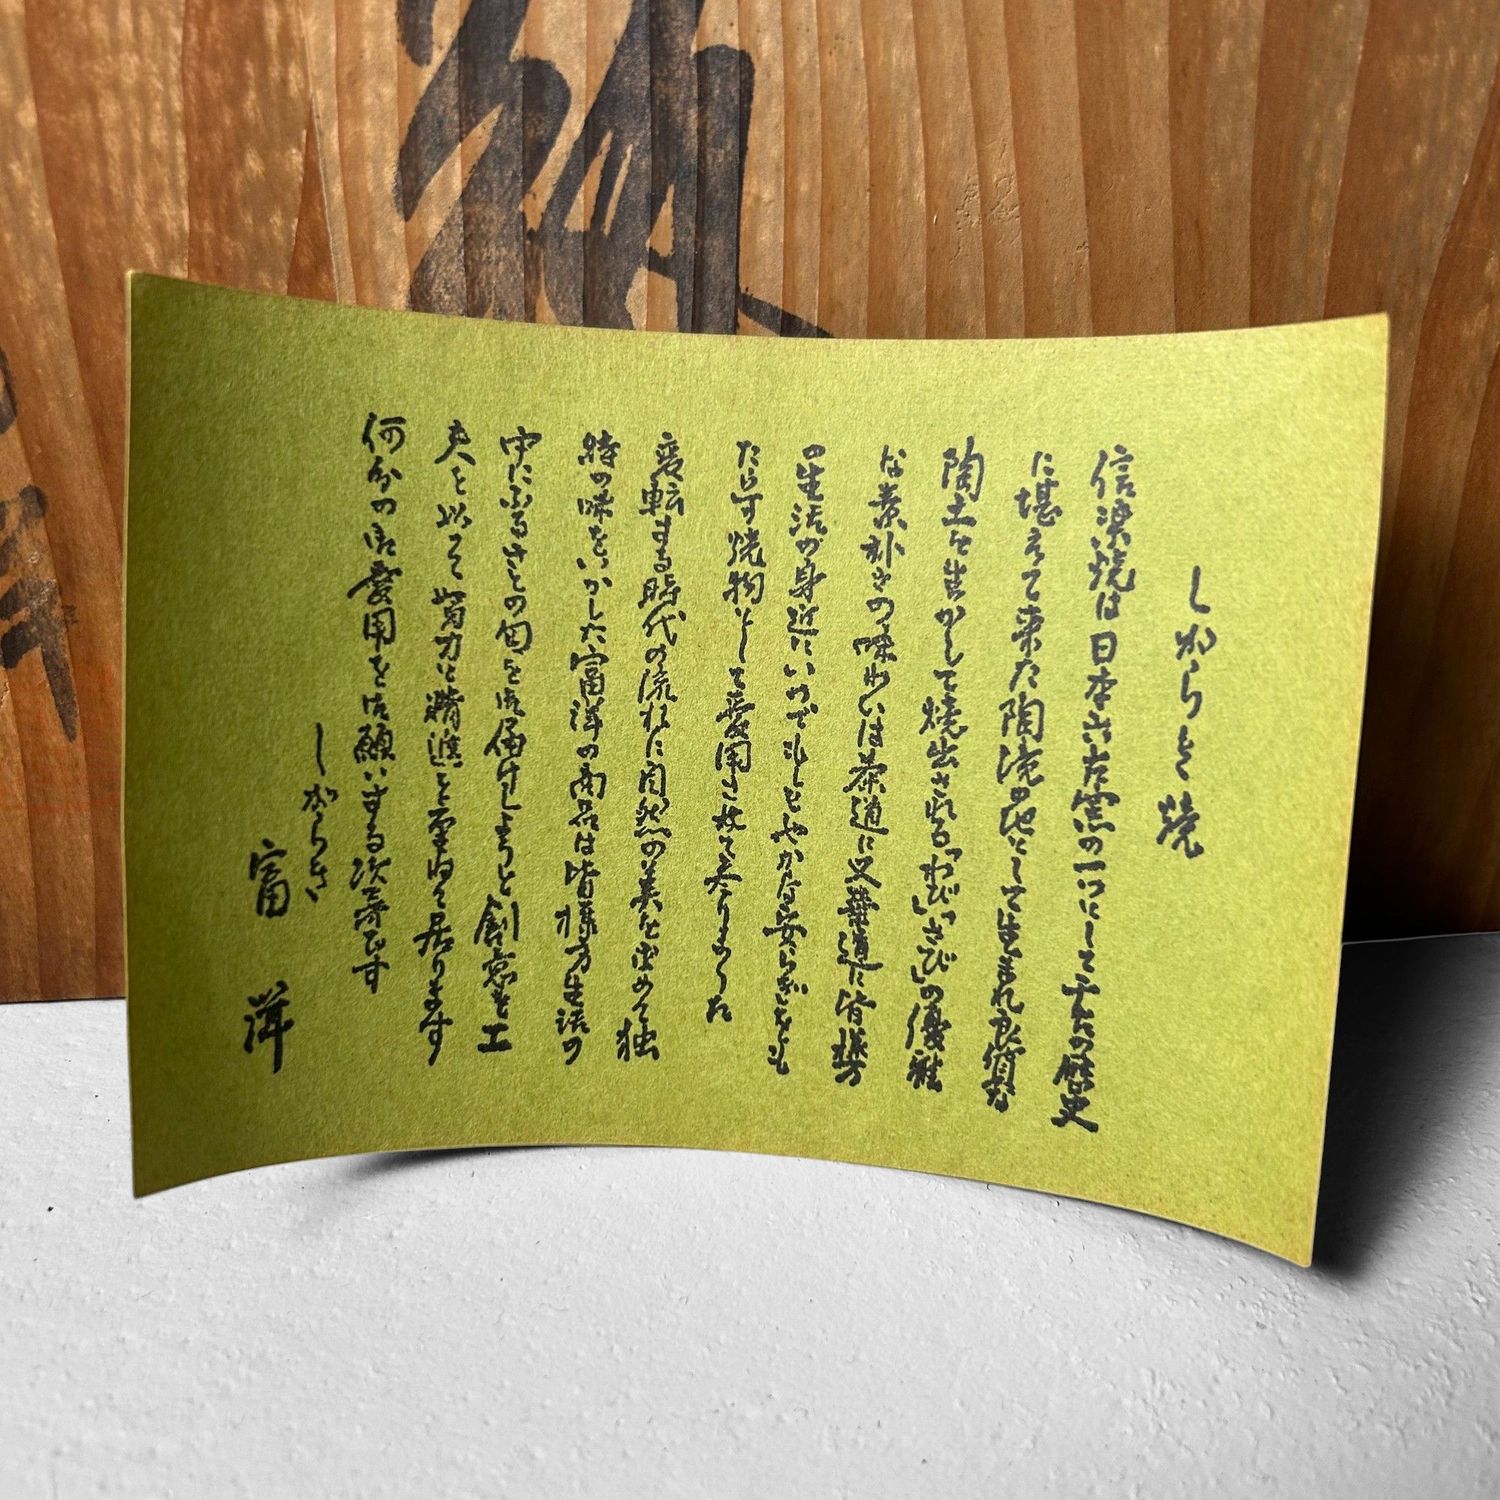 しがらき焼
信楽焼は日本六古窯の一つにして千古の歴史
に堪えて来た陶浣の地として生まれ良質な
陶土を生かして焼出される「わび」「さび」の優雅
な素朴さの味わいは茶道に又華道に皆様方
の生活の身近にいつでもしとやかな安らぎをも
たらす焼物として愛用されて参りました
変転する時代の流れに自然の美を求めて独
特の味をいかした富洋の商品は皆様方生活の
中にふるさとの匂を御届けしようと創意を工
夫を以って努力と精進を重ねて居ります
何分の御愛用を御願いする次第です
しがらき
富洋